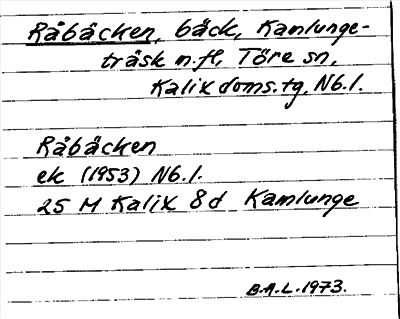 Råbäcken, bäck, Kamlunge-
träsk m.fl, Töre sn,
Kalix doms.tg, Nb.l.
Råbäcken
ek (1953) Nb.l.
25 M Kalix 8d Kamlunge
B.A.L. 1973.